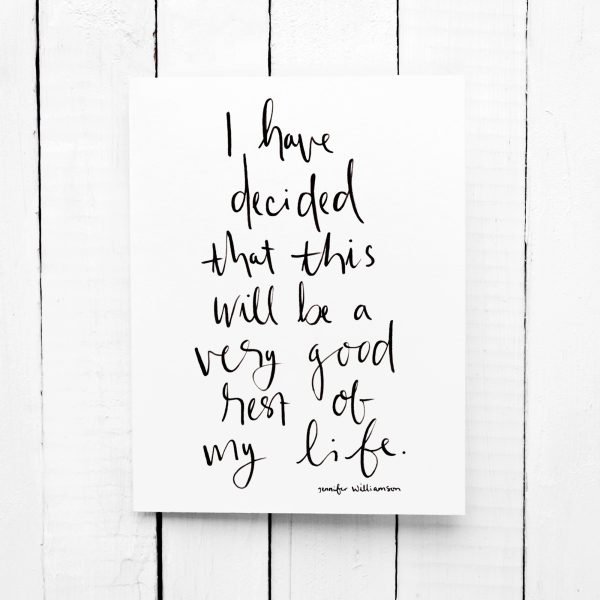 I have
decided
that this
will be a
very good
rest of
my life.
Jennifer Williamson